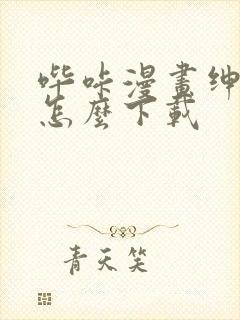 哔咔漫畫绅
怎麼下載
青天笑